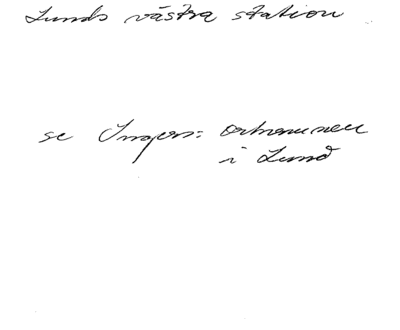 Lunds västra station
se Ingers: ortnamnen
i Lund